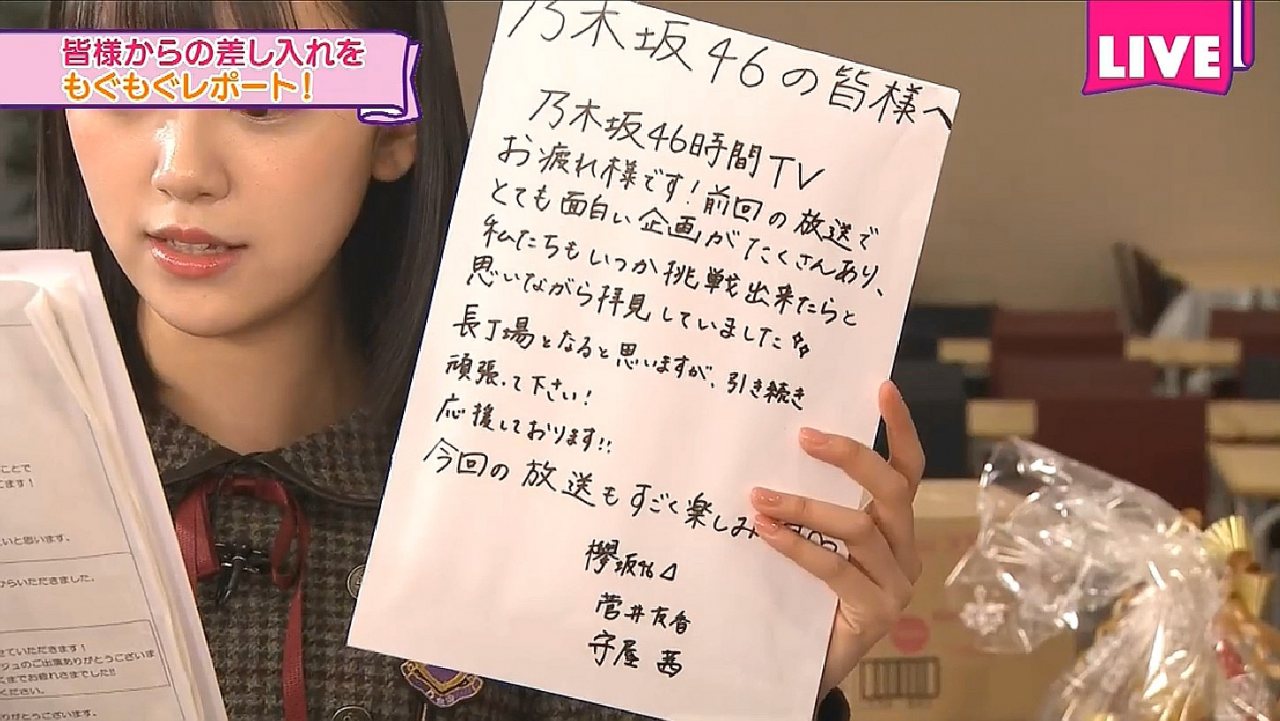 皆様からの差し入れを
もぐもぐレポート!
LIVE
乃木坂46の皆様へ
乃木坂46時間TV
お疲れ様です!前回の放送で
とても面白い企画がたくさんあり、
私たちもいつか挑戦出来たらと
思いながら拝見していました
長丁場となると思いますが、引き続き
頑張って下さい!
応援しております!!
今回の放送もすごく楽しみ
欅坂46
菅井友香
守屋茜
ことで
ます!
いと思います。
からいただきました。
せていただきます!
ジュのご出演ありがとうございま
までお疲れさまでした!!
ください。
りがとうございます。